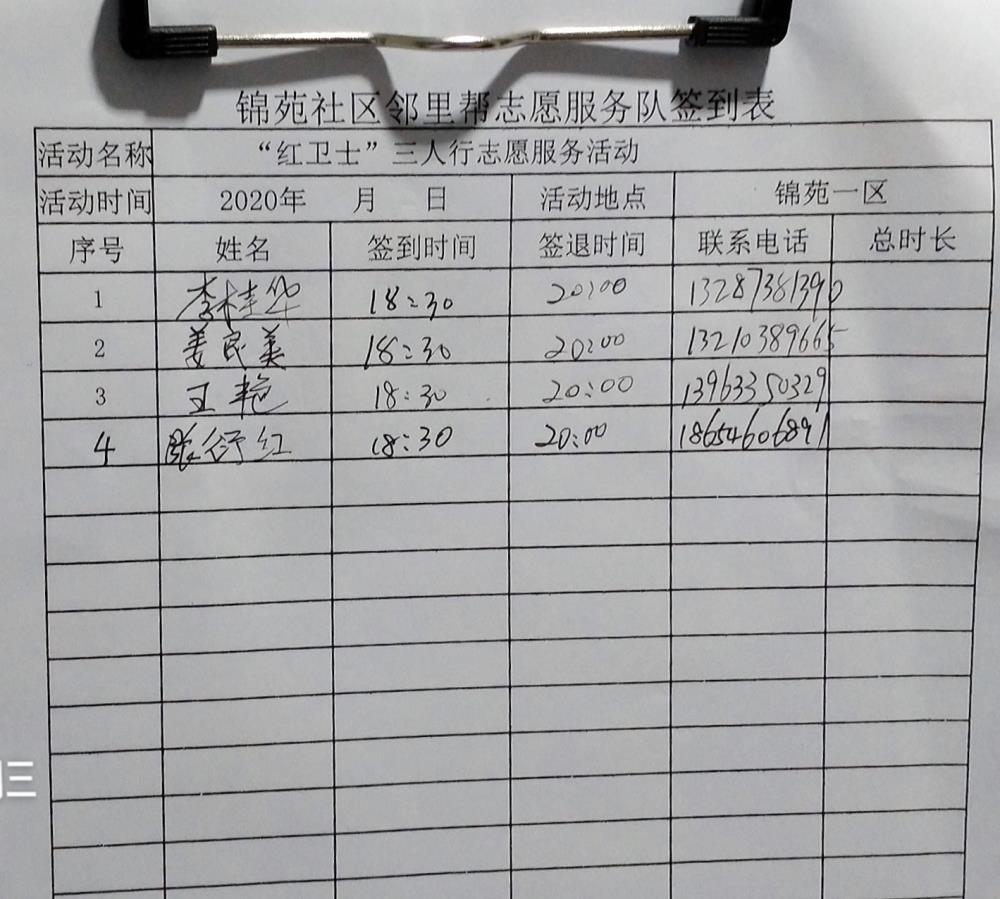 锦苑社区邻里帮志愿服务队签到表
活动名称 “红卫士”三人行志愿服务活动
活动时间 2020年 月 日 活动地点 锦苑一区
序号 姓名 签到时间 签退时间 联系电话 总时长
1 李桂华 18:30 20:00 13287381390
2 姜民美 18:30 20:00 13210389665
3 王艳 18:30 20:00 13963350329
4 张衍红 18:30 20:00 18654606891
三